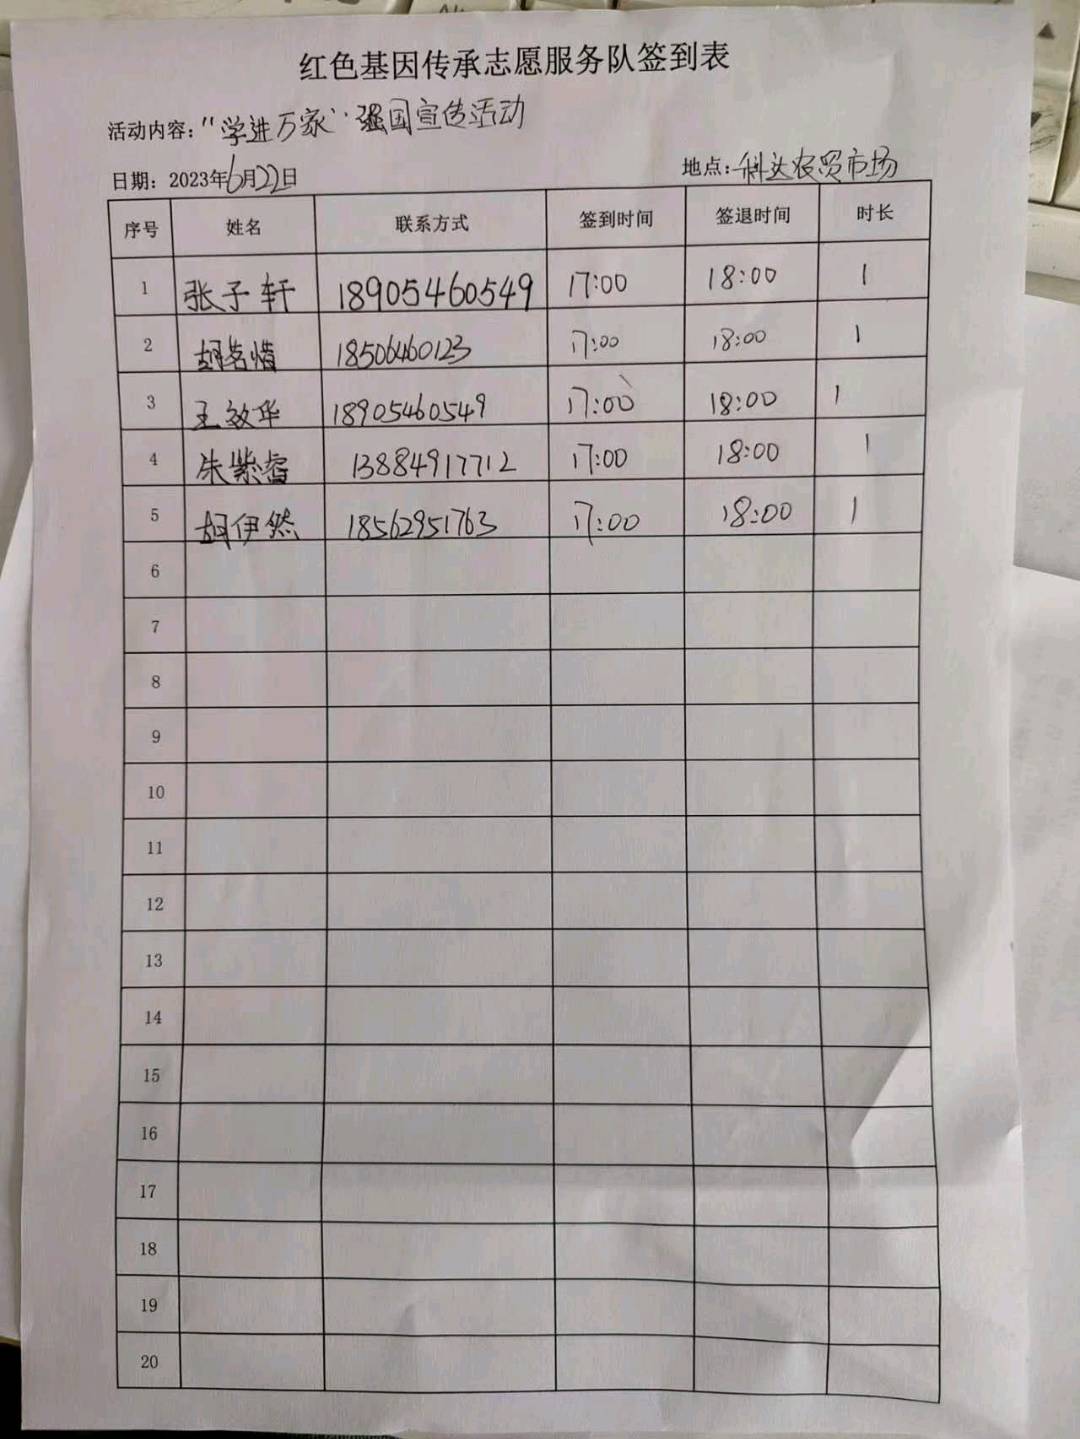 红色基因传承志愿服务队签到表
活动内容:“学进万家”强国宣传活动
日期: 2023年6月22日 地点:科达农贸市场
序号 姓名 联系方式 签到时间 签退时间 时长
1 张子轩 18905460549 17:00 18:00 1
2 胡茗惜 18506460123 17:00 18:00 1
3 王效华 18905460549 17:00 18:00 1
4 朱紫睿 13884917712 17:00 18:00 1
5 胡伊然 18562951763 17:00 18:00 1
6
7
8
9
10
11
12
13
14
15
16
17
18
19
20